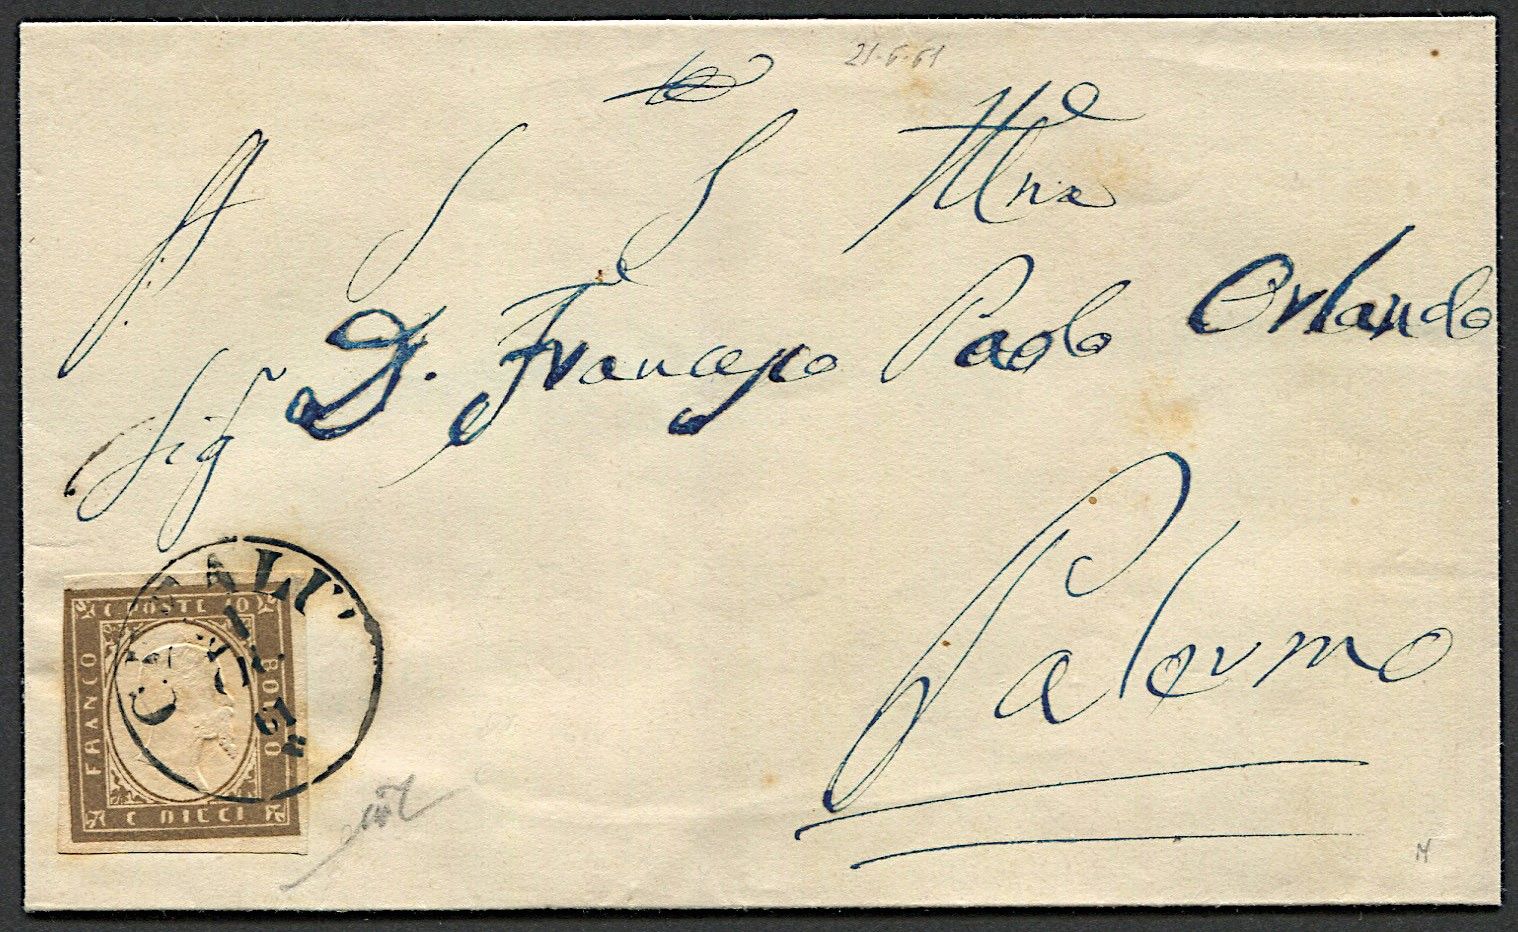 21-6-61
A S S Illma
Sigr D. Francesco Paolo Orlando
Palermo
C. POSTE 10
FRANCO
BOLLO
C DIECI
CEFALU'